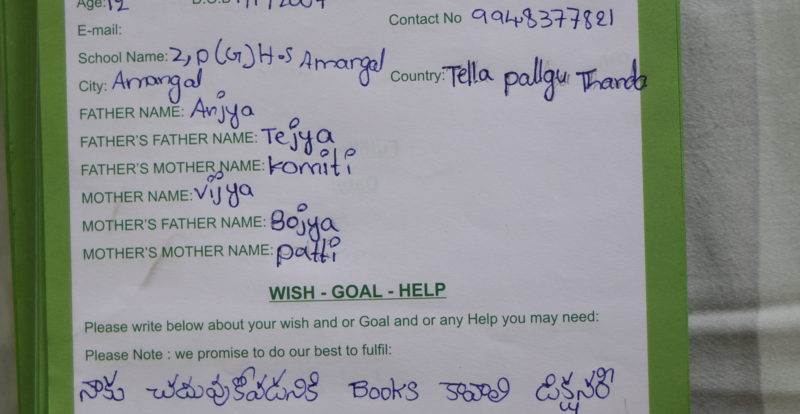 Age: 12
Contact No 9948377821
E-mail:
School Name: Z,P(G)H.S Amangal
City: Amangal Country: Tella pallgu Thanda
FATHER NAME: Anjya
FATHER'S FATHER NAME: Tejya
FATHER'S MOTHER NAME: Komiti
MOTHER NAME: Vijya
MOTHER'S FATHER NAME: Bojya
MOTHER'S MOTHER NAME: Patti
WISH - GOAL - HELP
Please write below about your wish and or Goal and or any Help you may need:
Please Note : we promise to do our best to fulfil:
నాకు చదువుకోవడనికి Books కావాలి డిక్షనరీ